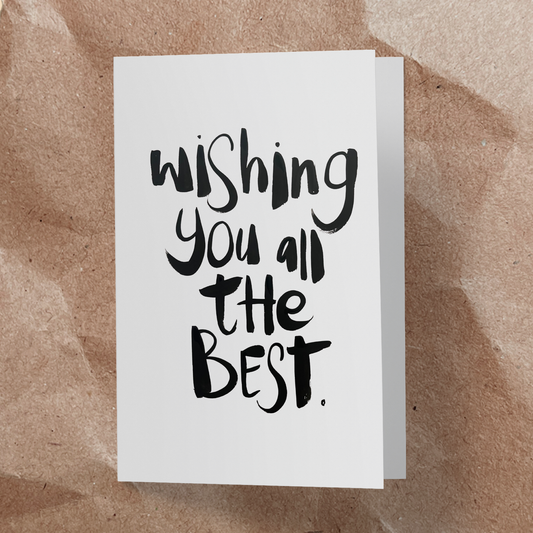 wishing
you all
the
Best.